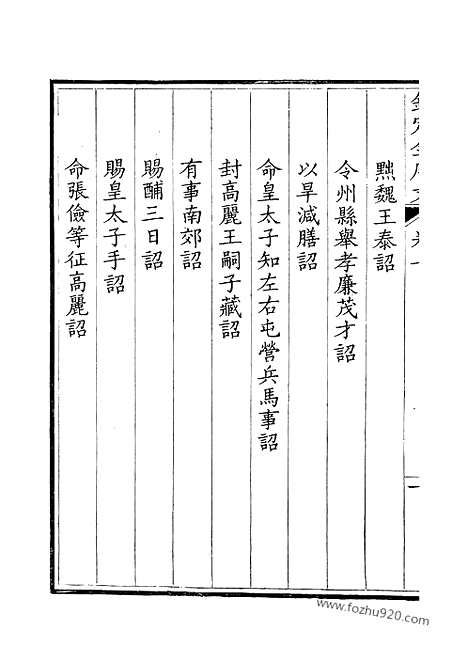 黜魏王泰詔
令州縣舉孝廉茂才詔
以旱減膳詔
命皇太子知左右屯營兵馬事詔
封高麗王嗣子藏詔
有事南郊詔
賜酺三日詔
賜皇太子手詔
命張儉等征高麗詔
www.fozhu920.com